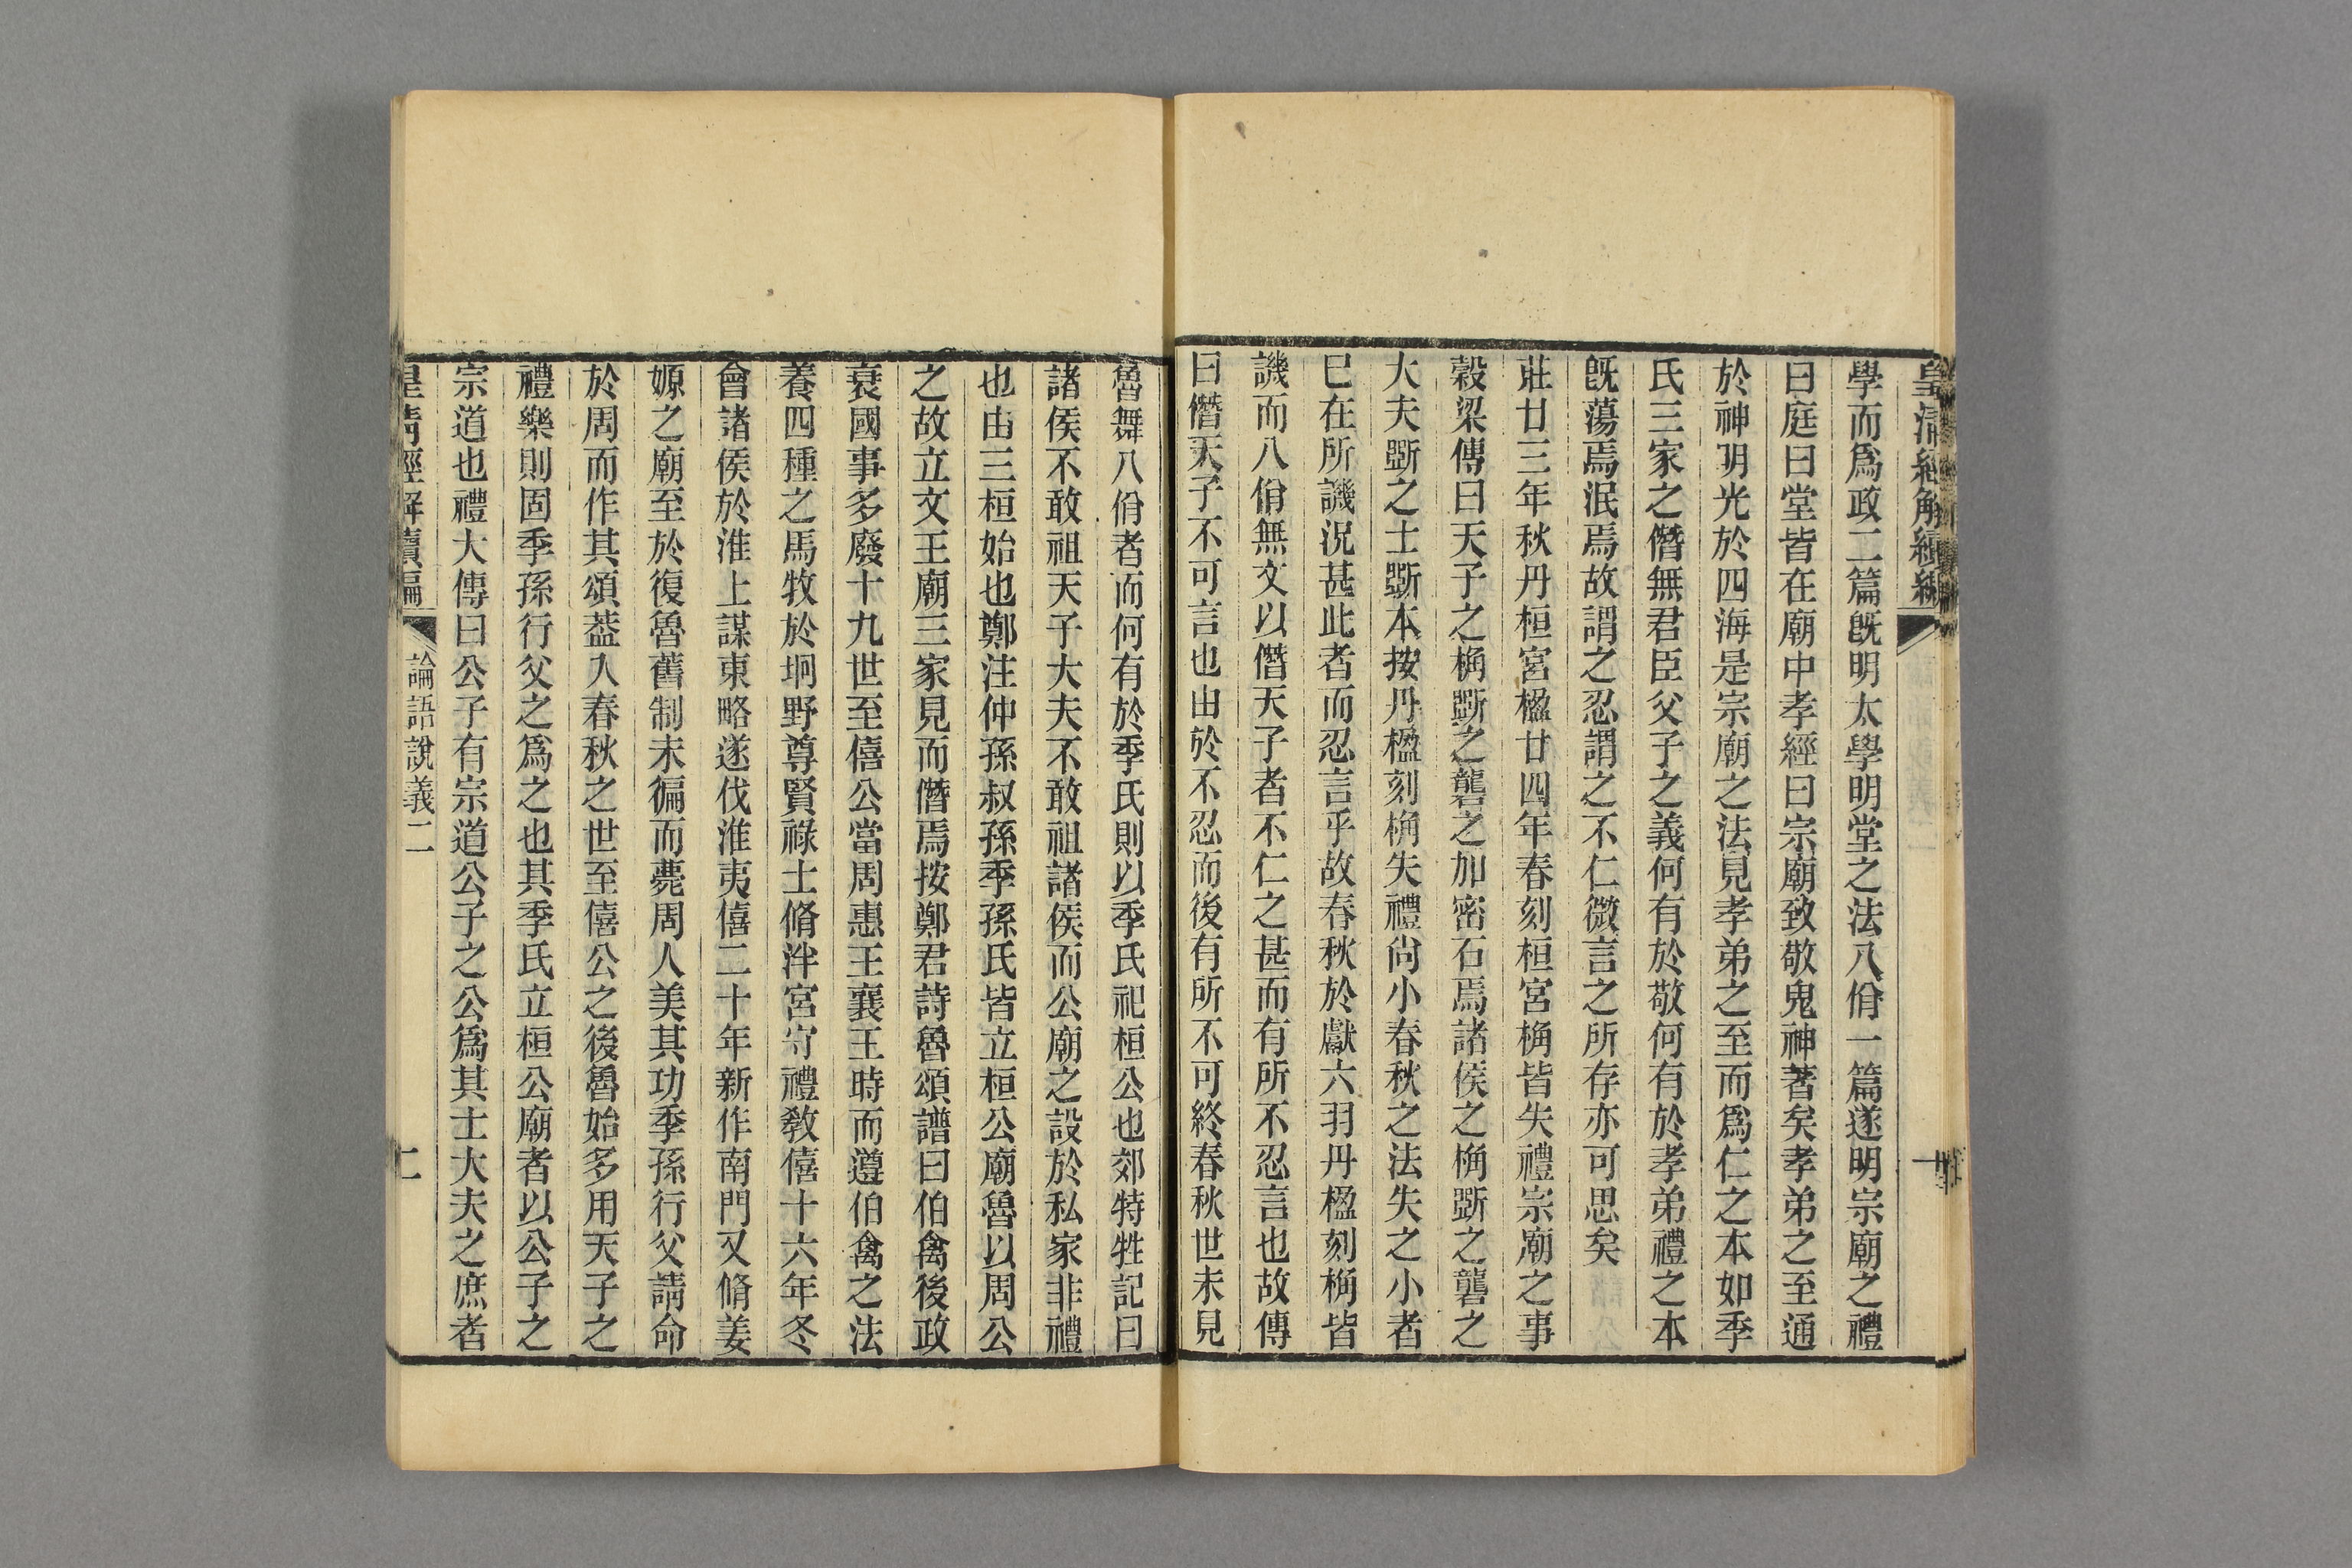 皇清經解續編
學而爲政二篇旣明太學明堂之法八佾一篇遂明宗廟之禮
曰庭曰堂皆在廟中孝經曰宗廟致敬鬼神著矣孝弟之至通
於神明光於四海是宗廟之法見孝弟之至而爲仁之本如季
氏三家之僭無君臣父子之義何有於敬何有於孝弟禮之本
旣蕩焉泯焉故謂之忍謂之不仁微言之所存亦可思矣
莊廿三年秋丹桓宮楹廿四年春刻桓宮桷皆失禮宗廟之事
穀梁傳曰天子之桷斲之礱之加密石焉諸侯之桷斲之礱之
大夫斲之士斲本按丹楹刻桷失禮尙小春秋之法失之小者
巳在所譏況甚此者而忍言乎故春秋於獻六羽丹楹刻桷皆
譏而八佾無文以僭天子者不仁之甚而有所不忍言也故傳
曰僭天子不可言也由於不忍而後有所不可終春秋世未見
魯舞八佾者而何有於季氏則以季氏祀桓公也郊特牲記曰
諸侯不敢祖天子大夫不敢祖諸侯而公廟之設於私家非禮
也由三桓始也鄭注仲孫叔孫季孫氏皆立桓公廟魯以周公
之故立文王廟三家見而僭焉按鄭君詩魯頌譜曰伯禽後政
衰國事多廢十九世至僖公當周惠王襄王時而遵伯禽之法
養四種之馬牧於坰野尊賢祿士脩泮宮守禮敎僖十六年冬
會諸侯於淮上謀東略遂伐淮夷僖二十年新作南門又脩姜
嫄之廟至於復魯舊制未徧而薨周人美其功季孫行父請命
於周而作其頌葢入春秋之世至僖公之後魯始多用天子之
禮樂則固季孫行父之爲之也其季氏立桓公廟者以公子之
宗道也禮大傳曰公子有宗道公子之公爲其士大夫之庶者
皇淸經解續編 論語說義二 二